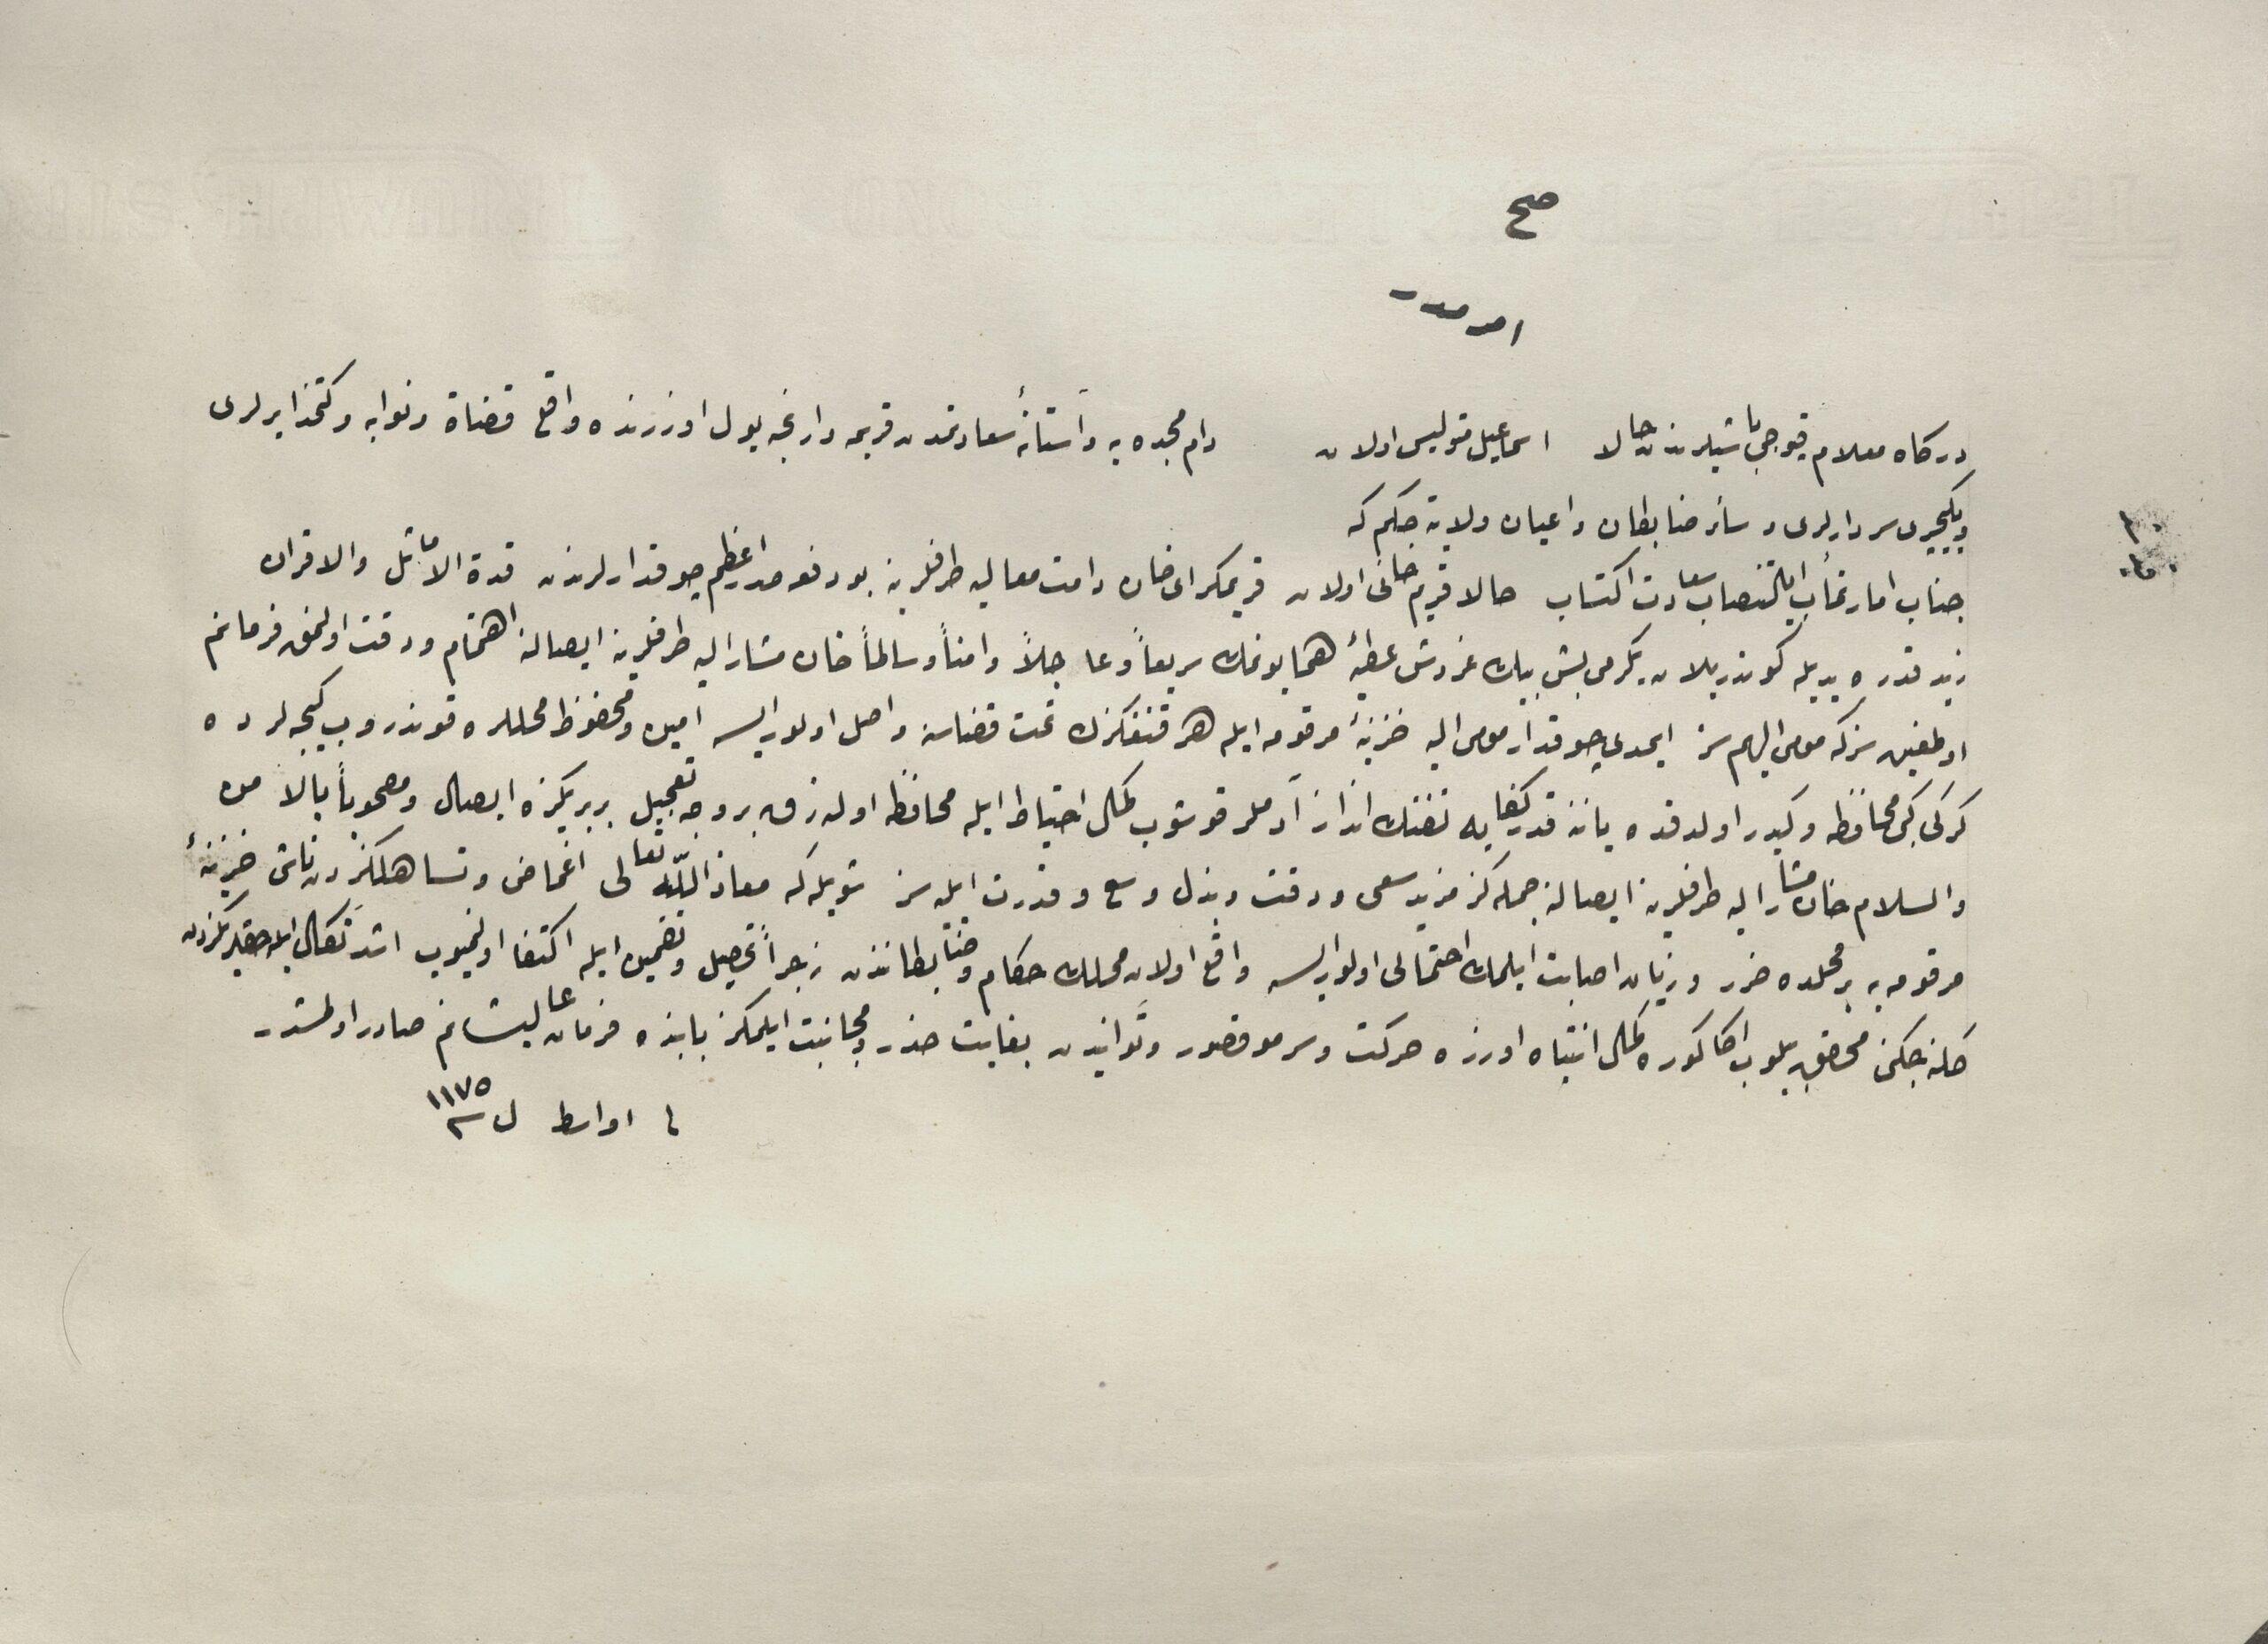 صح
درکاه معلام قپوجی باشیلرندن حالا اسماعیل متولیسی اولان دام مجده یه و آستانهٔ سعادتمدن قریمه وارنجه یول اوزرنده واقع قضاة و نوابه و کتخدا یرلری
و یکیچری سردارلری و سائر ضابطان و اعیان ولایته حکم که
جناب امارتمآب ایالتنصاب سعادت اکتساب حالا قریم خانی اولان قریمکرای خان دامت معالیه طرفلرینه بو دفعه صدر اعظم چوقدارلرندن قدوة الاماثل والاقران
زید قدره یدیله کوندریلان یکرمی بش بیك غروش عطیهٔ همایونمك سریعاً و عاجلاً و امناً و سالماً خان مشار الیه طرفلرینه ایصالنه اهتمام و دقت اولنمق فرمانم
اولمغین سز که مومی الیهم سز ایمدی چوقدار مومی الیه خزینهٔ مرقومه ایله هر قنغکزك تحت قضاسنه واصل اولور ایسه امین و محفوظ محللره قوندروب کیجه لرده
کرکی کبی محافظه و کیدر اولدقده یاننه قدر کفایه تفنك انداز آدملر قوشوب کمال احتیاط ایله محافظه اوله رق بر وجه تعجیل بربریکزه ایصال و مصحوباً بالامن
والسلام خان مشار الیه طرفلرینه ایصالنه جمله کز مزید سعی و دقت و بذل وسع و قدرت ایله سز شویله که معاذ الله تعالی اغماض و تساهلکزدن ناشی خزینهٔ
مرقومه یه بر محلده ضرر و زیان اصابت ایلمك احتمالی اولور ایسه واقع اولان محلك حکام و ضابطانندن زجراً تحصیل و تضمین ایله اکتفا اولنمیوب اشد نکال ایله حقکزدن
کلنه جکنی محقق بیلوب اکا کوره کمال انتباه اوزره حرکت و سر مو قصور و توانیدن بغایت حذر و مجانبت ایلمکز بابنده فرمان عالیشانم صادر اولمشدر
فی اواسط ل سنه ١١٧٥